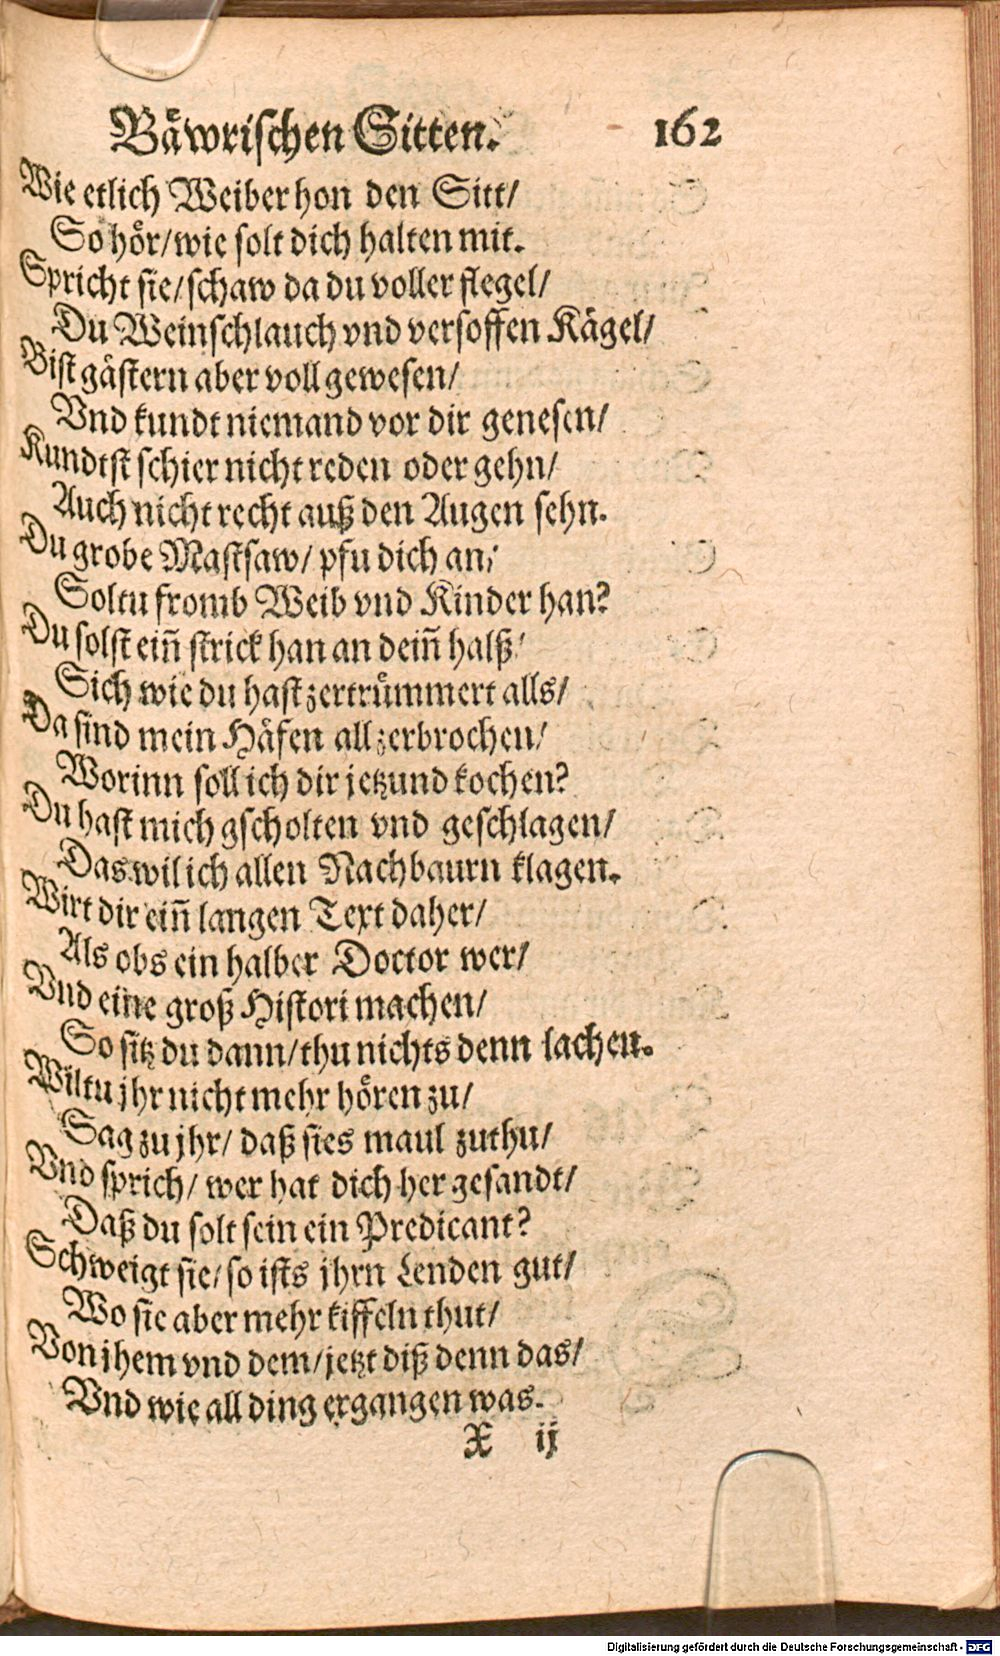 Bäwrischen Sitten. 162
Wie etlich Weiber hon den Sitt/
So hör/wie solt dich halten mit.
Spricht sie/schaw da du voller flegel/
Du Weinschlauch vnd versoffen Kägel/
Bist gästern aber voll gewesen/
Vnd kundt niemand vor dir genesen/
Kundtst schier nicht reden oder gehn/
Auch nicht recht auß den Augen sehn.
Du grobe Mastsaw/ pfu dich an/
Soltu fromb Weib vnd Kinder han?
Du solst ein̄ strick han an dein̄ halß/
Sich wie du hast zertrümmert alls/
Da sind mein Häfen all zerbrochen/
Worinn soll ich dir jetzund kochen?
Du hast mich gscholten vnd geschlagen/
Das wil ich allen Nachbaurn klagen.
Wirt dir ein̄ langen Text daher/
Als obs ein halber Doctor wer/
Vnd eine groß Histori machen/
So sitz du dann/thu nichts denn lachen.
Wiltu jhr nicht mehr hören zu/
Sag zu jhr/ daß sies maul zuthu/
Vnd sprich/ wer hat dich her gesandt/
Daß du solt sein ein Predicant?
Schweigt sie/ so ists jhrn Lenden gut/
Wo sie aber mehr kiffeln thut/
Von jhem vnd dem/jetzt diß denn das/
Vnd wie all ding ergangen was.
X ij
Digitalisierung gefördert durch die Deutsche Forschungsgemeinschaft - DFG